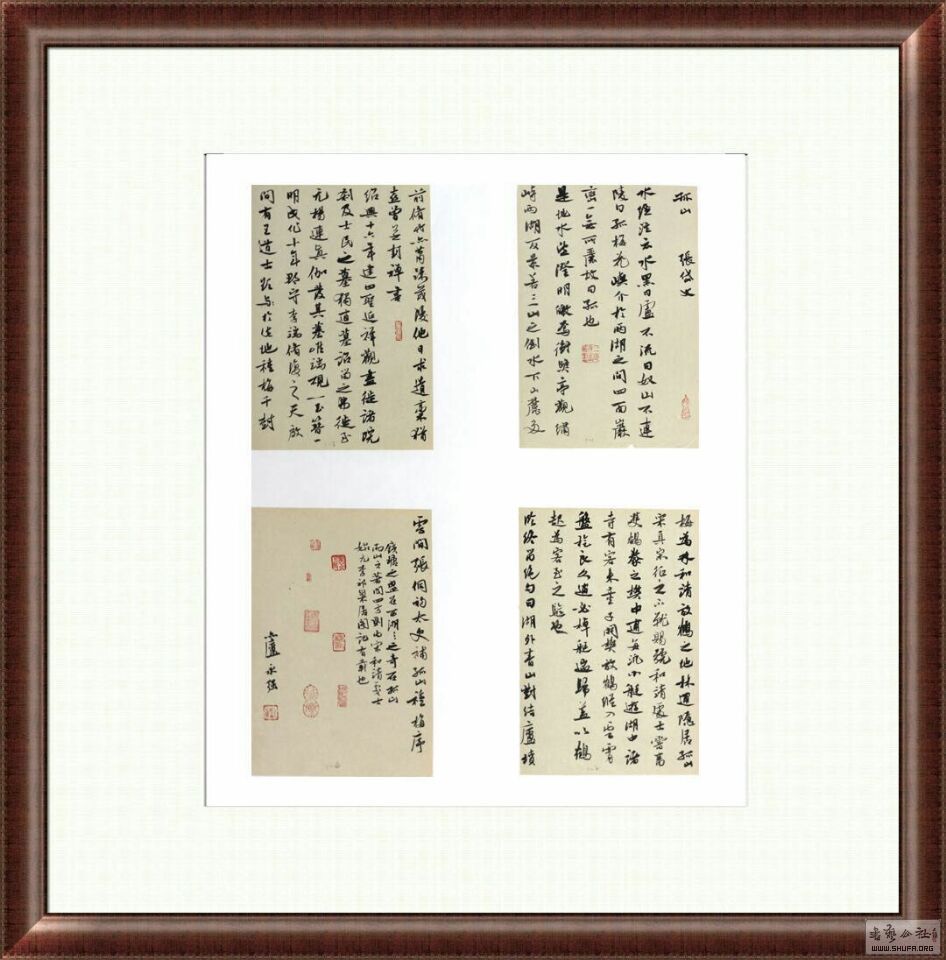 孤山 張岱文
水經注云水黑曰盧不流曰奴山不連
陵曰孤梅花嶼介於兩湖之間四面巖
巒一無所麗故曰孤也
是地水望澄明皦焉衝照亭觀繡
峙兩湖反景若三山之倒水下山麓多
梅為林和靖放鶴之地林逋隱居孤山
宋真宗征之不就賜號和靖處士嘗畜
雙鶴豢之樊中逋每泛小艇遊湖中諸
寺有客來童子開樊放鶴縱入雲霄
盤旋良久逋必棹艇遄歸蓋以鶴
起為客至之驗也
臨終留絕句曰湖外青山對結廬墳
前修竹亦蕭疏茂陵他日求遺稾猶
喜曾無封禪書
紹興十六年建四聖延祥觀盡徙諸院
刹及士民之墓獨逋墓詔留之弗徙至
元楊連真伽發其墓唯端硯一玉簪一
明成化十年郡守李瑞修復之天啟
間有王道士欲於此地種梅千
雲間張侗初太史補孤山種梅序
錢塘之勝在西湖西湖之奇在孤山
而山之著聞四方則由宋和靖處士
始元李祁巢居閣記
盧永強
WWW.SHUFA.ORG